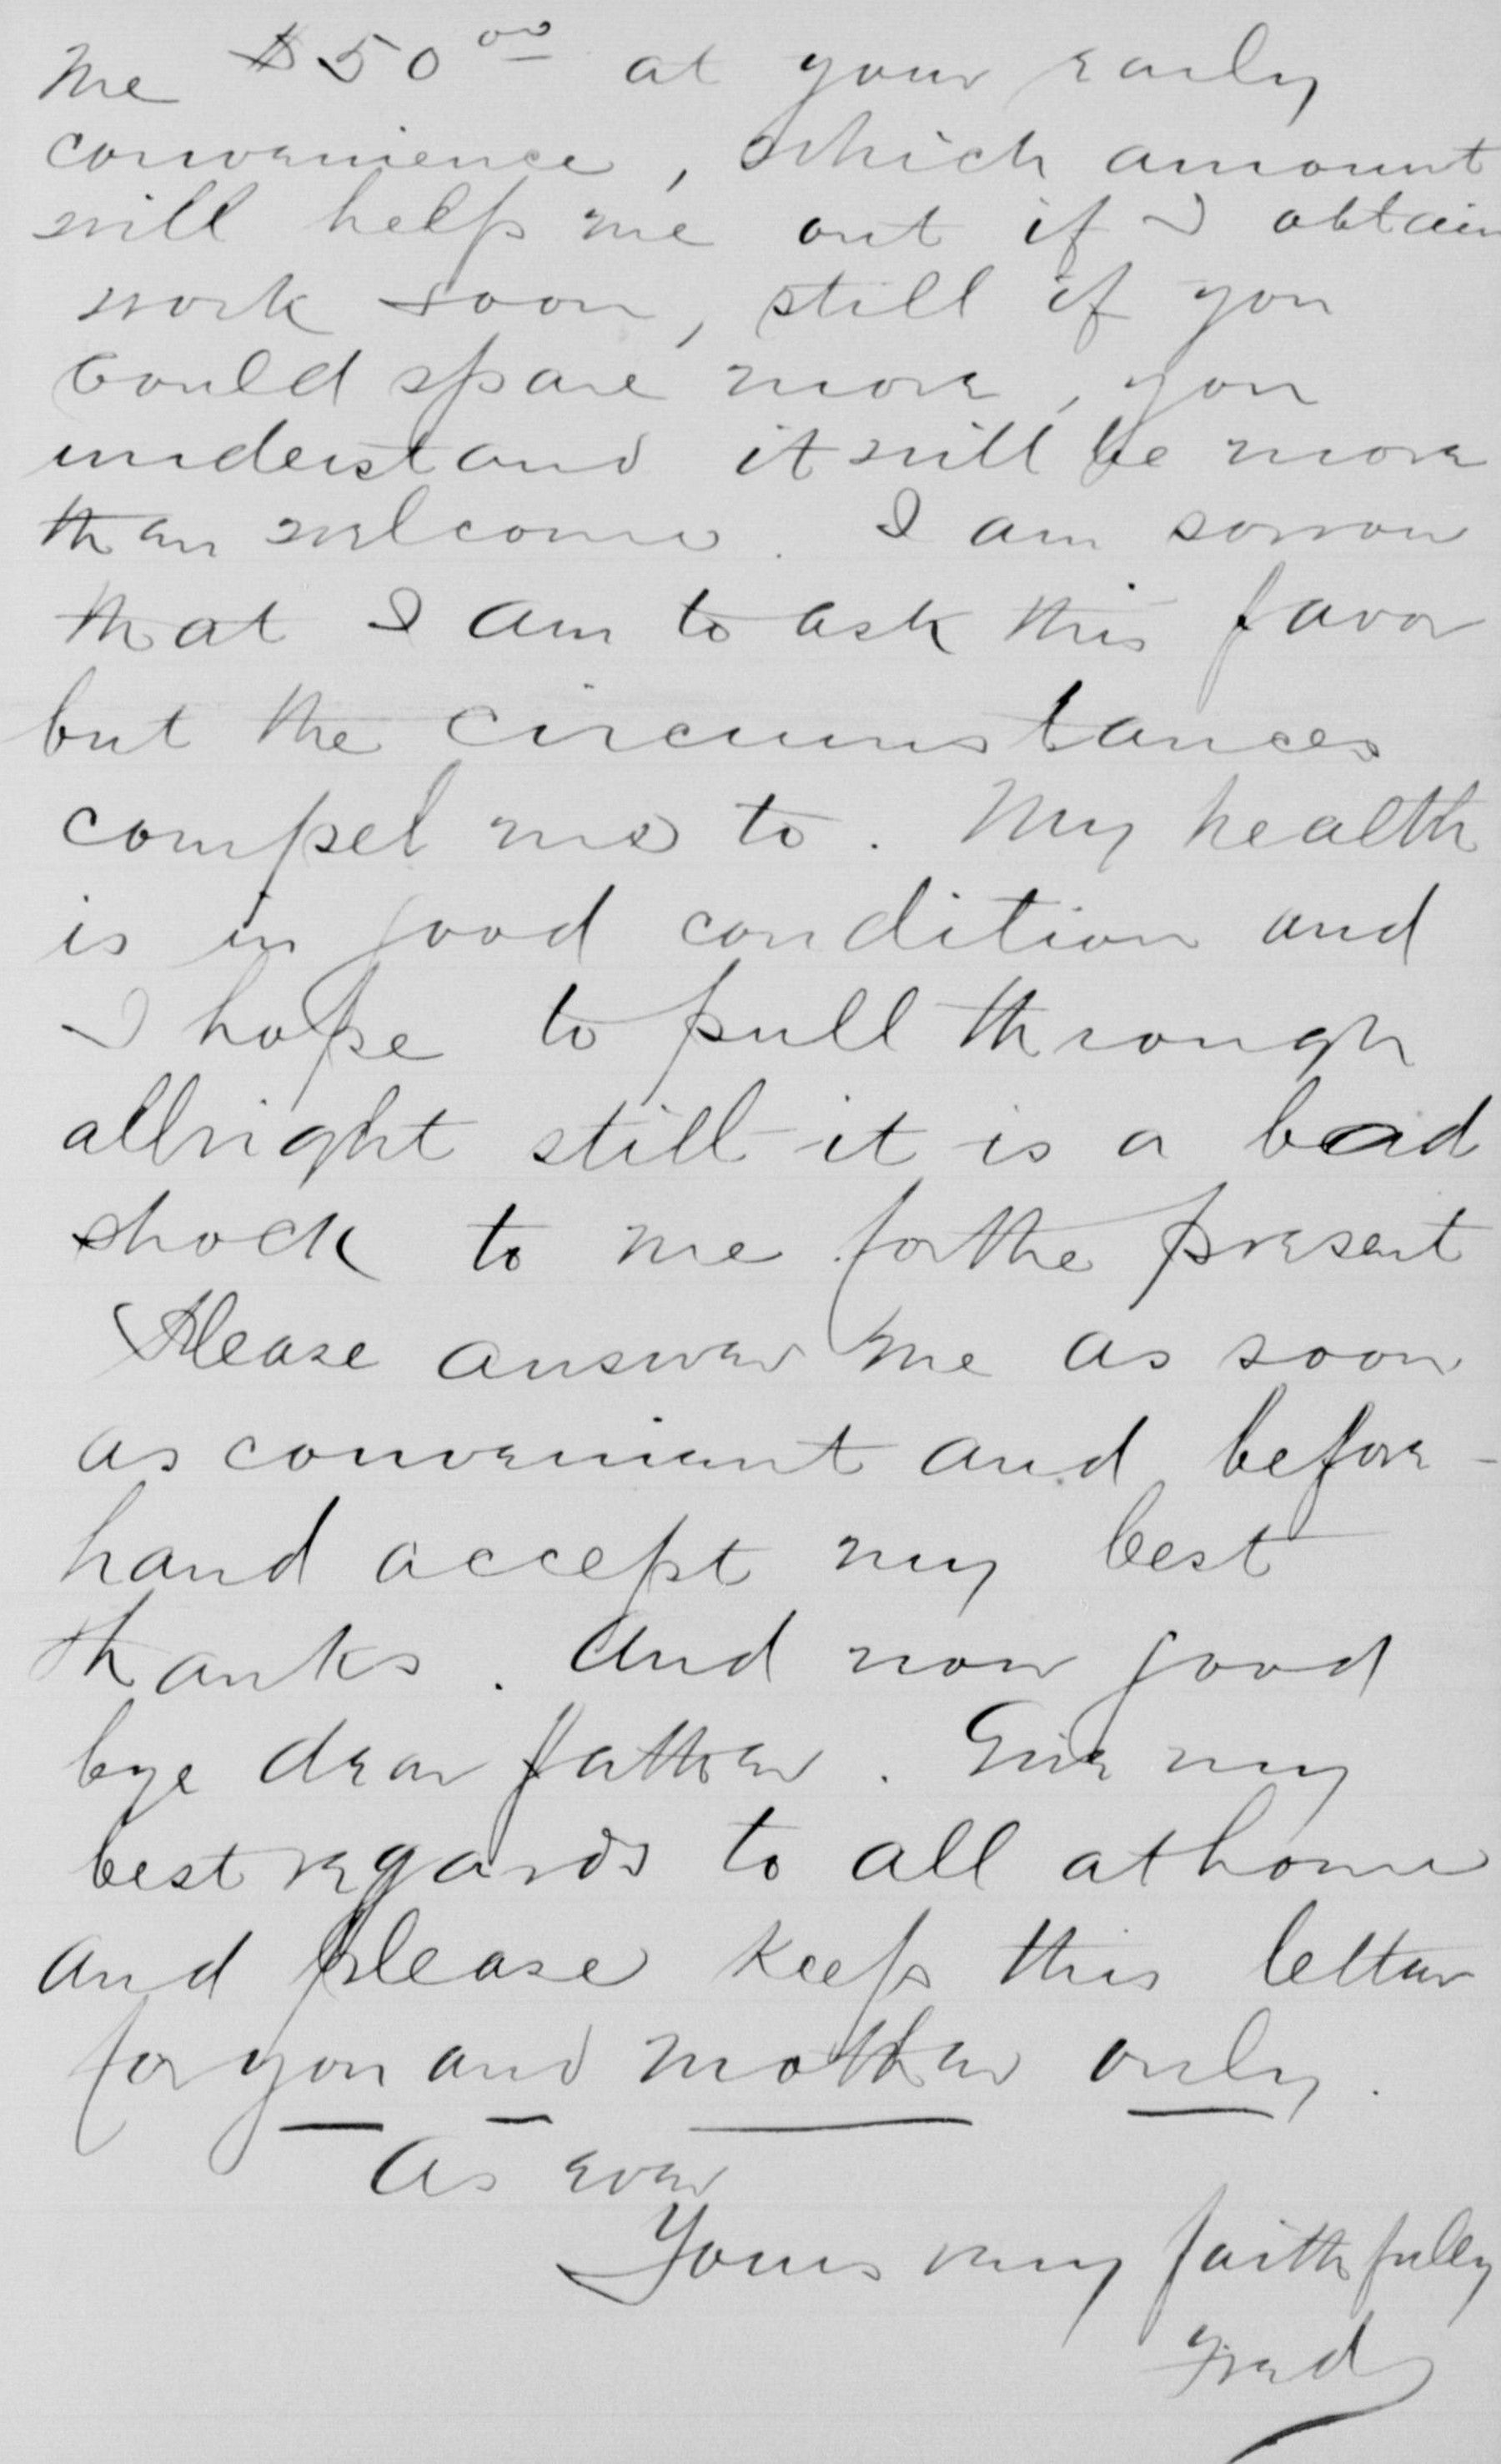 me $50 00 at your early
convenience, which amount
will help me out if I obtain
work soon, still if you
could spare more, you
understand it will be more
than welcome. I am sorrow
that I am to ask this favor
but the circumstances
compel me to. My health
is in good condition and
I hope to pull through
allright still it is a bad
shock to me for the present
Please answer me as soon
as convenient and before-
hand accept my best
thanks. And now good
bye dear father. Give my
best regards to all at home
and please keep this letter
for you and mother only.
As ever
Yours very faithfully
Fred